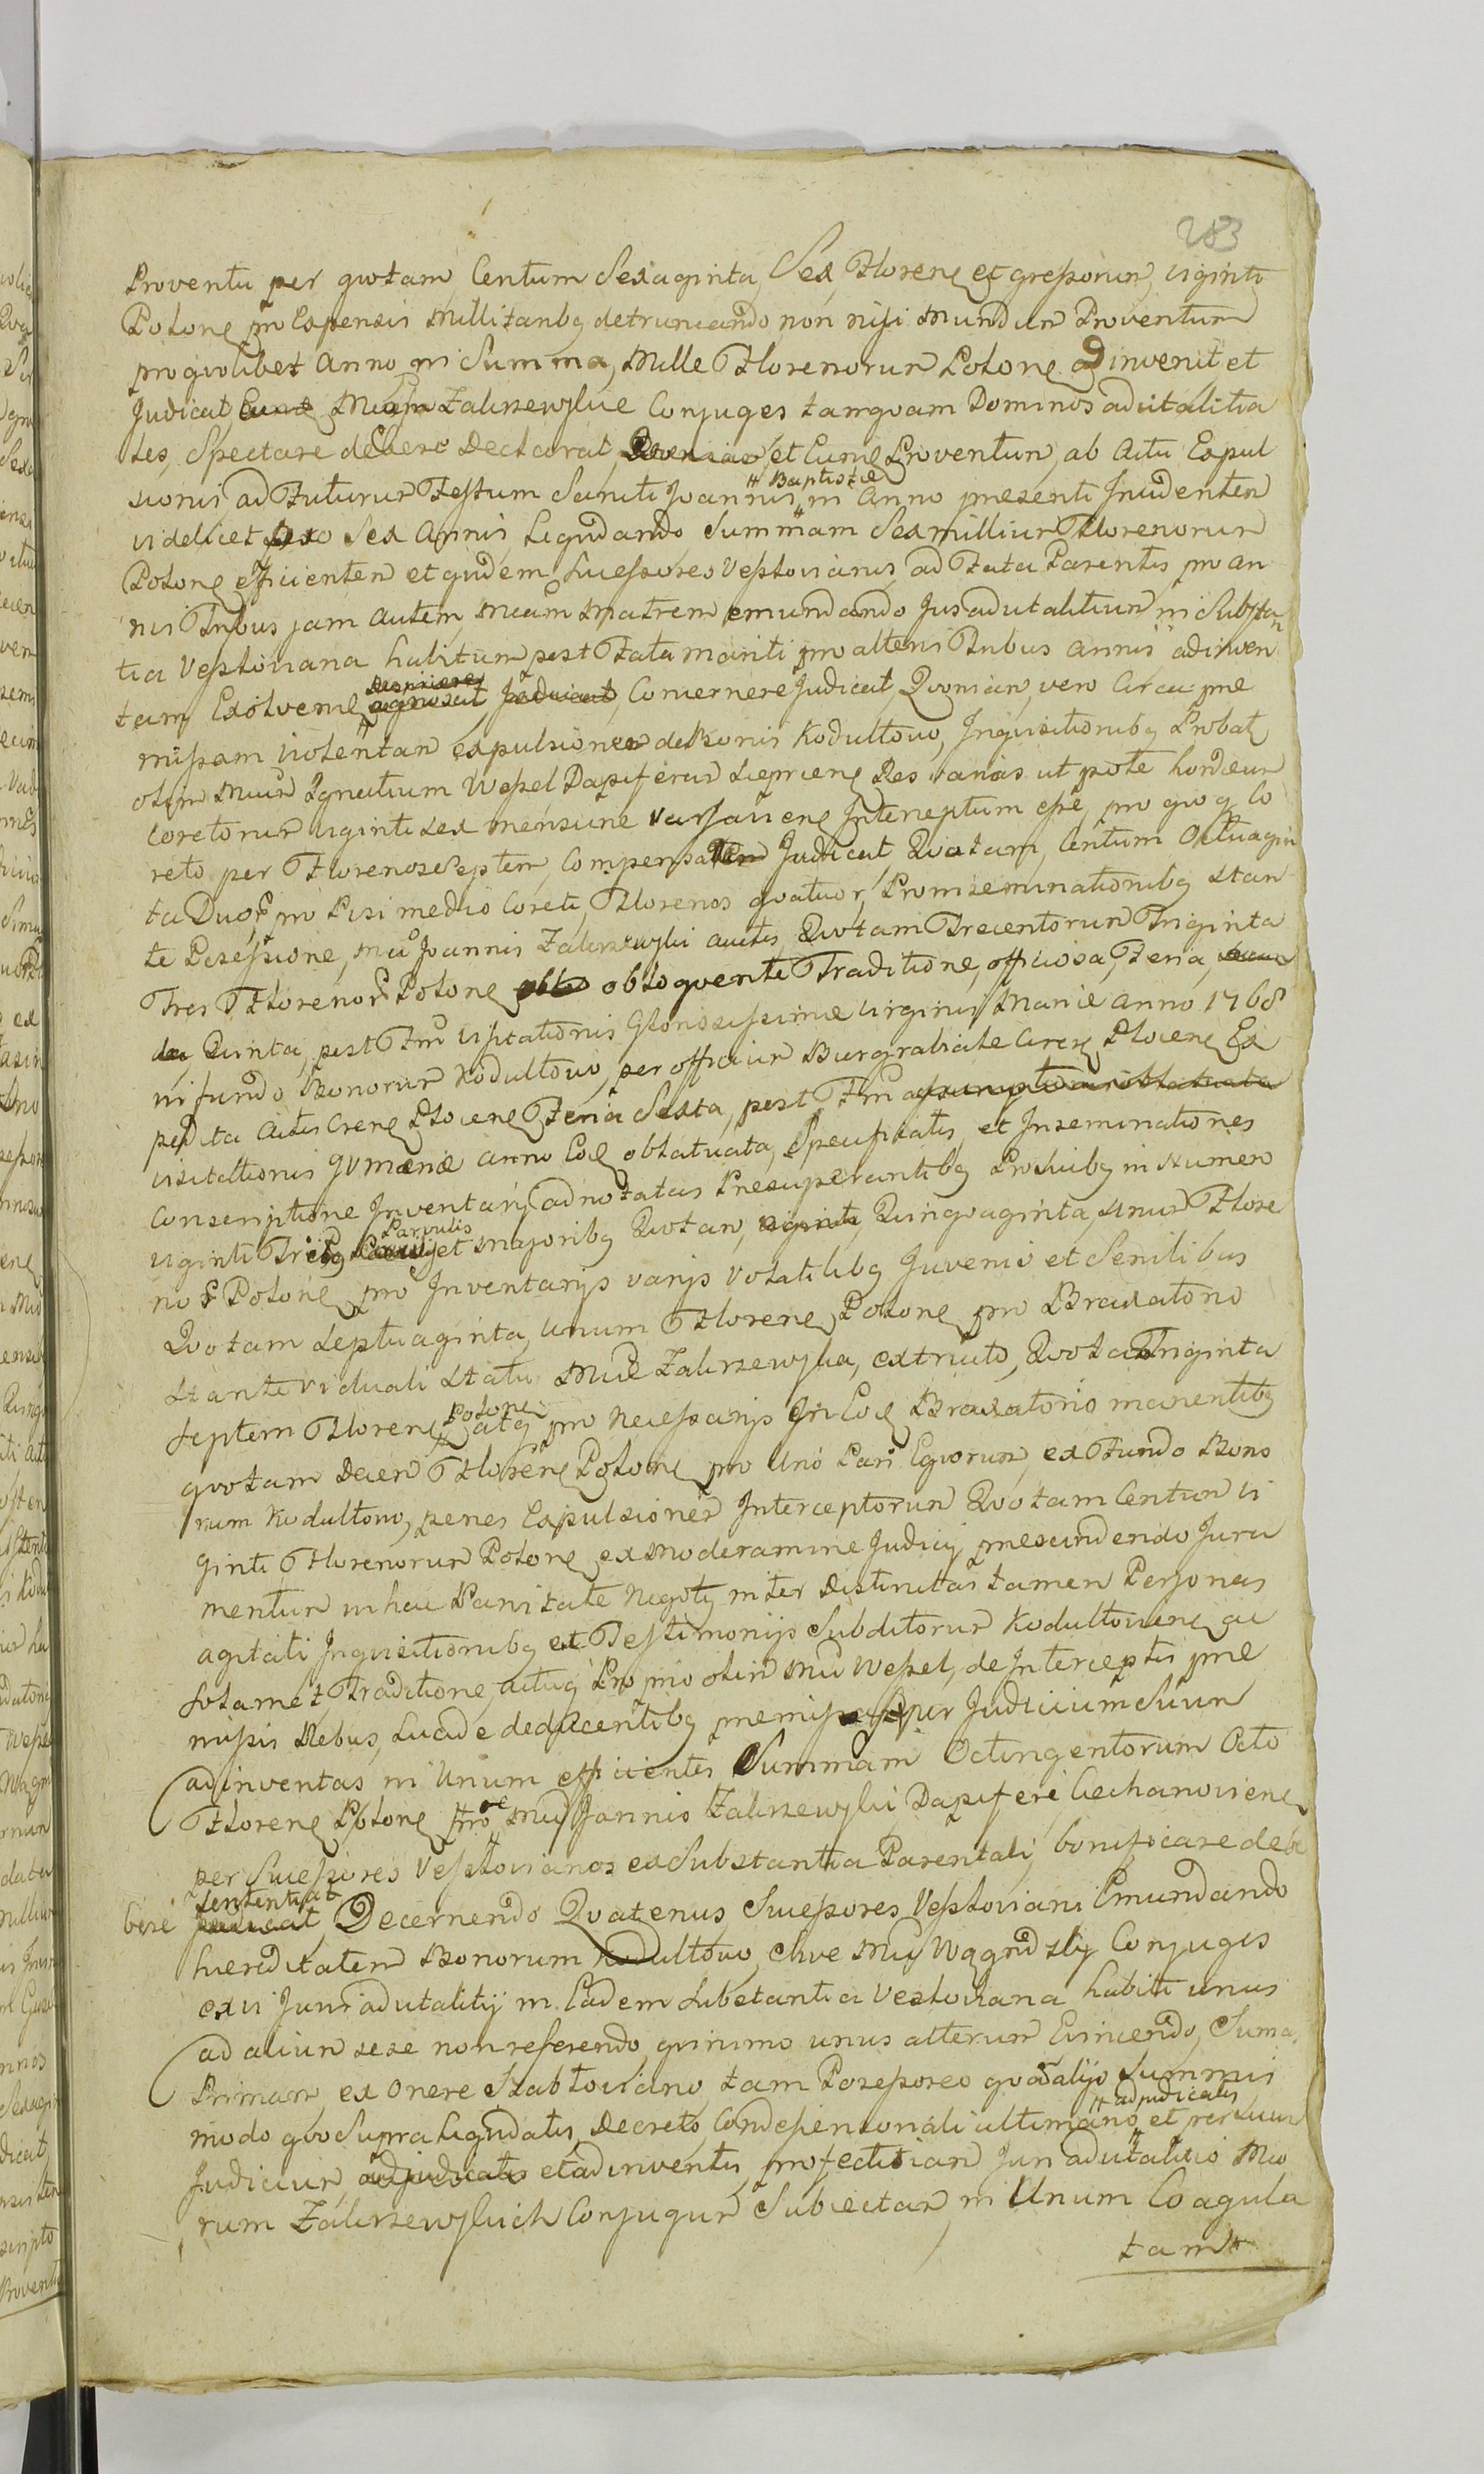 283
Proventu per quotam Centum Sexaginta Sex Florenς et grossorum viginti
Polonς pro Expensis Millitanbς detruncando non nisi Mundum Proventum
pro quolibet Anno in Summa, Mille Florenorum Polonς adinvenit et
Judicat, Mcm Zakrzewskie Conjuges tamquam Dominos advitalitia
les, Spectare debere Declarat, et Eumς Proventum, ab Actu Expul
sionis ad Futurum Festum Sancti Joannis Baptistæ in Anno presenti Incidentem
videlicet pro Sex Annis, Liquidando Summam Sex millium Florenorum
Polonς efficientem et quidem Successores Vesloviani, ad Fata Parentis pro an
nis Tribus jam autem, Mcam Matrem emundando Jus advitalitium in Substan
tia Vesloviana habitum, post Fata mariti pro alteris Tribus annis adinven
tam Exolvere Concernere Judicat, Quoniam, vero Circa pre
missam violentam expulsionem de Bonis Kodultowo, Inquisitionibς Probat
olim Mcum Ignatium Wessel Dapiferum Liepnenς Res varias ut pote hordeum
Coretorum viginti sex mensuræ Varsavienς Interceptum esse, pro quoς Co
reto per Florenos Septem, Compensatam Judicat Quotam, Centum Octuagin
ta Duos, pro Pisi medio Coreti, Florenos quatuor, Pro inseminationibς Stan
te Possessione, Mci Joannis Zakrzewski auctis Quotam Trecentorum Triginta
Tres Florenoς Polonς obloquente Traditione, officiosa, Feria,
Quinta, post Fm Visitationis Gloriosissimæ Virginis Mariæ Anno 1768
in fundo Bonorum Kodultowo, per officium Burgrabiale Crenς Plocenς Ex
pedita actis Crenς Plocenς Feria Sexta, post Fm
visitationis Gvmariæ anno Eoς oblatvata, Specificatis, et Inseminationes
Conscriptione Inventarij adnotatas Presuperantibς Proscuibς in Numero
viginti Tribς Parvulis et majoribς Quotam, Quinquaginta, Unum Flore
noς Polonς pro Inventarijs varijs Volatilibς Juvenis et Senilibus
Quotam Septuaginta, Unum Florenς Polonς pro Braxatorio
Stante viduali Statu Mcæ Zakrzewska, extructo, Quotam Triginta
Septem Florenς Polonς atς pro Necessarijs In Eoς Braxatorio manentibς
quotam Decem Florenς Polonς pro Uno Pari Equorum, ex Fundo Bono
rum Kodultowo, penes Expulsionem Interceptorum Quotam Centum vi
ginti Florenorum Polonς ex Moderamine Judicij prescindendo Jura
mentum in hac Paritate Negotij inter Distinctas tamen Personas
agitati Inquisitionibς et Testimonijs Subditorum Kodultowenς ac
solamet Traditione, actuς Proprio olim Mci Wessel, de Interceptis pre
missis Rebus, Lucide dedocentibς premissas per Judicium Suum
adinventas in Unum efficientes Summam Octingentorum Octo
Florenς Polonς Mci Joannis Zakrzewski, Dapiferi Ciechanovienς
per Successores Veslovianos ex Substantia Parentali, bonificare de
bere sententiat Decernendo Quatenus Successores Vesloviani Emundando
hæreditatem Bonorum Kodultowo, sive Mci Wągrodzkij Conjuges
ex vi Juris advitalitij in Eadem Substantia Vesloviana habiti unus
ad alium sese non referendo, quinimo unus alterum Evincendo, Suma
Primam, ex Onere Szabloviano, tam Posessoreo quo alijs Summis
modo quo Supra Liquidatis, Decreto Condescensoriali ultimario adjudicatis et per suum
Judicium et adinventis, profectitiam Juri advitalitio Mco
rum Zakrzewskich Conjugum Subiectam, in Unum Coagula
tam